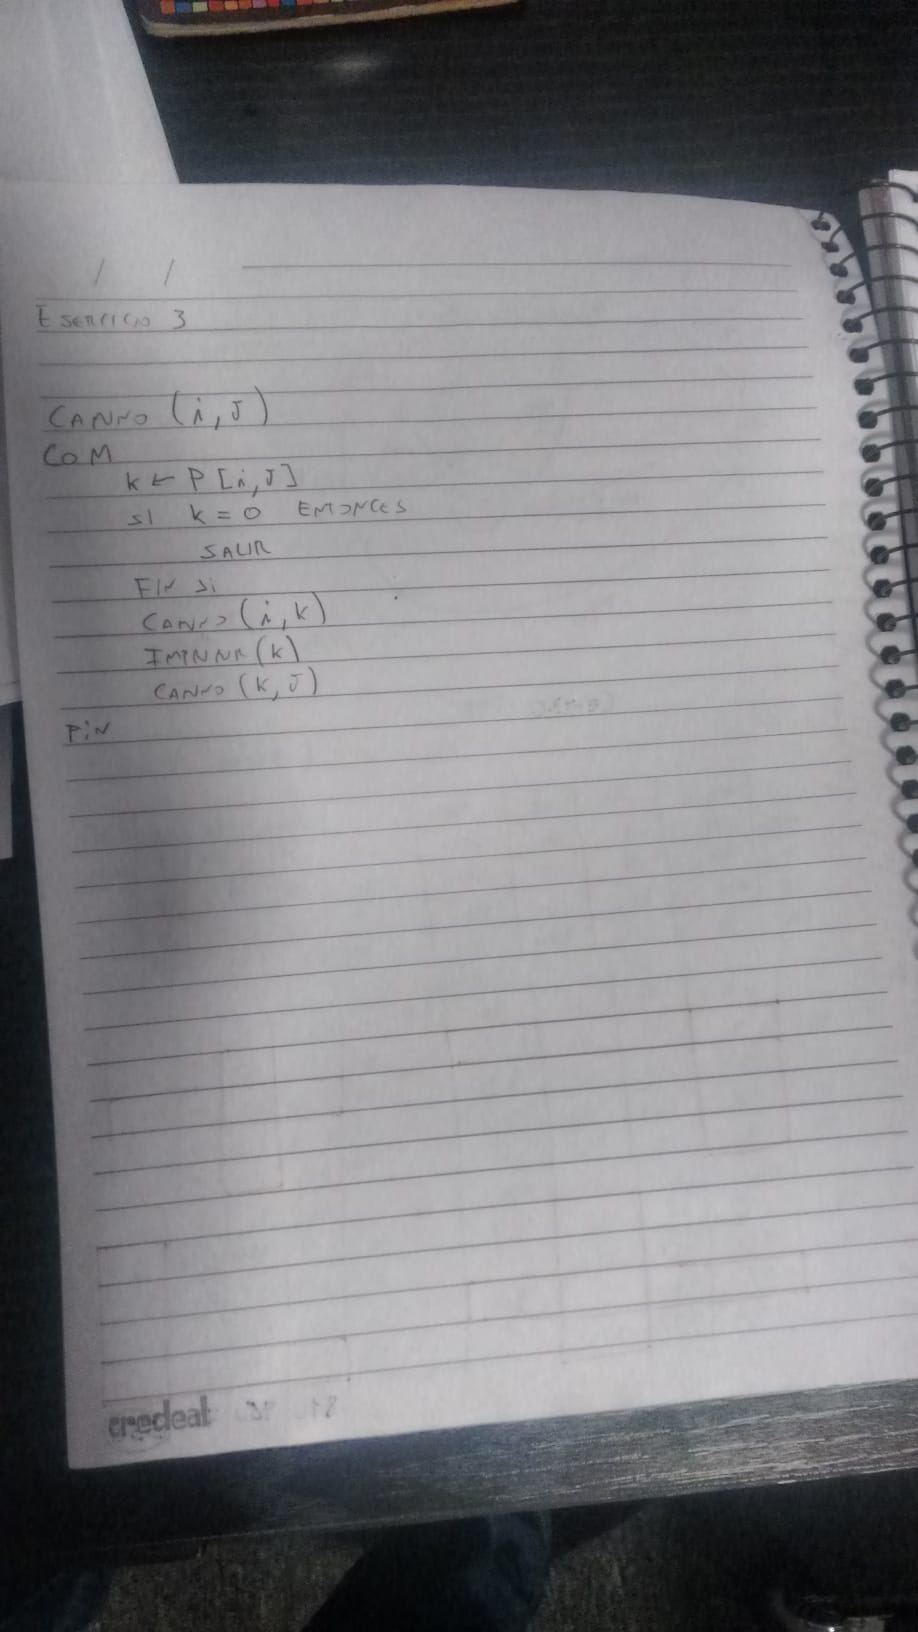 / /
Esercicio 3
CAMNO (i, J)
COM
k ← P [i, J]
SI k = 0 ENTONCES
SALIR
FIN Si
CAMNO (i, k)
IMPRIMIR (k)
CAMNO (k, J)
FiN
credeal